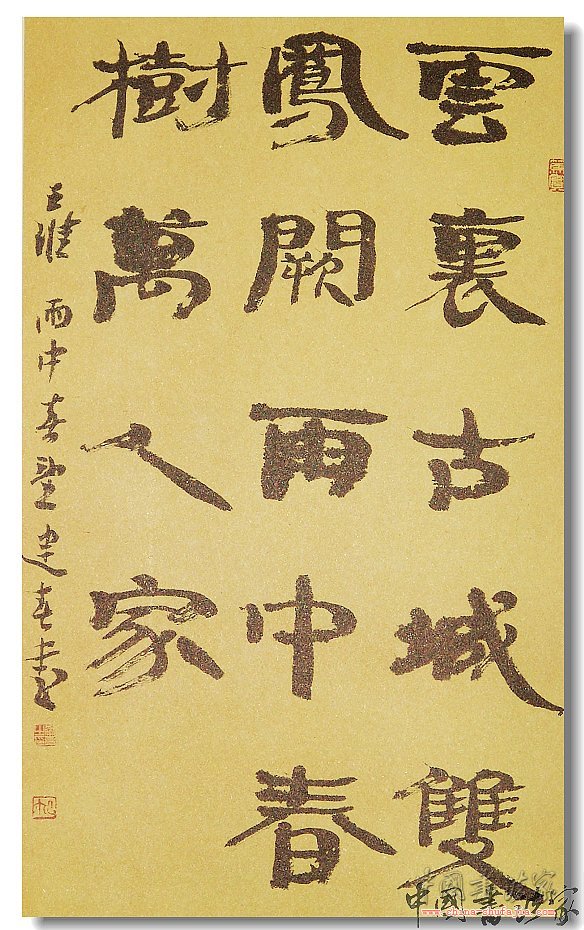 雲裏古城雙
鳳闕雨中春
樹萬人家
王維雨中春望建春書
中國書法家
www.china-shufajia.com